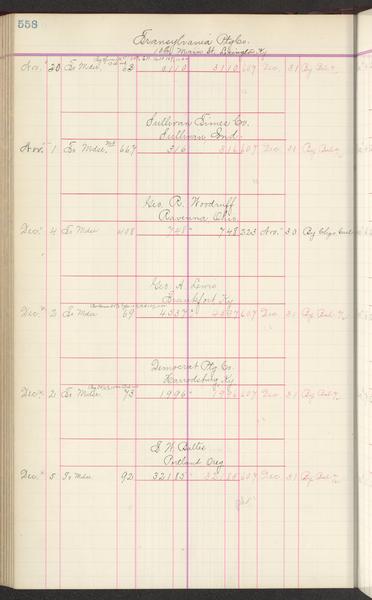 558
Transylvania Ptg Co.
Main St. Lexington Ky
Nov. 20 To Mdse 62 3110 3110 607 Dec 31 By Bal
Sullivan Times Co.
Sullivan, Ind.
Nov. 1 To Mdse. 667 316 316 607 Dec 31 By Bal
Geo. R. Woodruff
Ravenna Ohio.
Dec. 4 To Mdse 408 748 748 223 Nov. 30 By
Geo. A. Lewis
Frankfort Ky
Dec. 3 To Mdse 69 4537 4537 607 Dec 31 By Bal
Democrat Ptg Co.
Harrodsburg Ky
Dec. 2 To Mdse 73 1996 1996 607 Dec 31 By Bal
E. W. Baltes
Portland Oreg
Dec. 5 To Mdse 92 32185 32185 607 Dec 31 By Bal